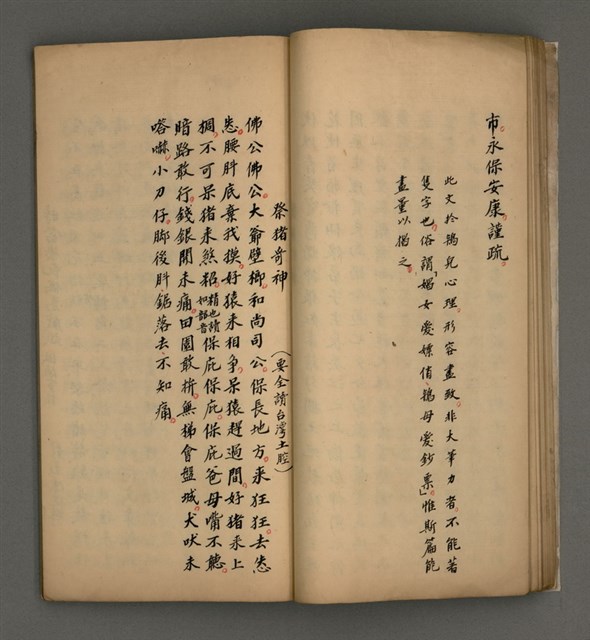 市。永保安康。謹疏。
此文於鴇兒心理。形容盡致。非大筆力者。不能著
隻字也。俗謂「婿女愛嫖俏。鴇母愛鈔票」。惟斯篇能
盡量以描之。
祭猪哥神
（要全讀台灣土腔）
佛公佛公。大爺壁鄉。和尚司公。保長地方。來狂狂。去怣
怣。腰肚底棄我摸。好猿來相爭。呆猿趕過間。好猪釆上
椆。不可呆猪来煞軺。精也讀如韶音保庇保庇。保庇爸母嘴不聽。
暗路敢行。錢銀開未痛。田園敢拚。無梯會盤城。犬吠未
喀嚇。小刀仔。脚後肚鋸落去。不知痛。